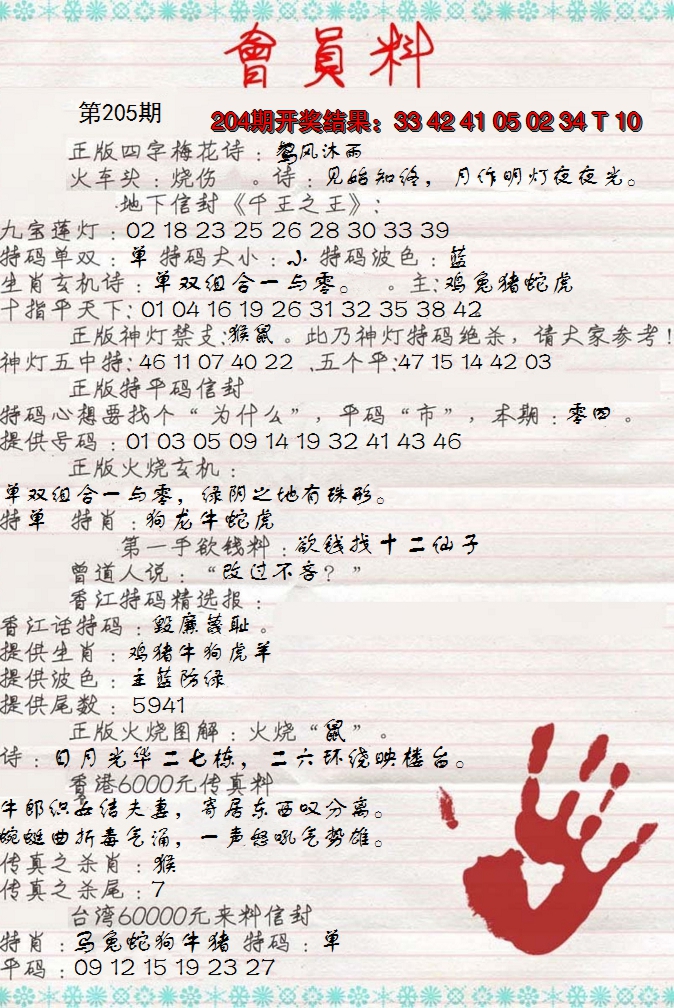 會員料
第205期
204期开奖结果：33 42 41 05 02 34 T 10
正版四字梅花诗：鹙风沐雨
火车头：烧伤 。诗：见始知终，月作明灯夜夜光。
地下信封《千王之王》：
九宝莲灯：02 18 23 25 26 28 30 33 39
特码单双：单 特码大小：小 特码波色：蓝
生肖玄机诗：单双组合一与零。 。主：鸡兔猪蛇虎
十指平天下：01 04 16 19 26 31 32 35 38 42
正版神灯禁支：猴鼠。此乃神灯特码绝杀，请大家参考！
神灯五中特：46 11 07 40 22 、五个平：47 15 14 42 03
正版特平码信封
特码心想要找个“为什么”，平码“市”，本期：零四。
提供号码：01 03 05 09 14 19 32 41 43 46
正版火烧玄机：
单双组合一与零，绿阴之地有珠形。
特单 特肖：狗龙牛蛇虎
第一手欲钱料：欲钱找十二仙子
曾道人说：“改过不吝？”
香江特码精选报：
香江话特码：毁廉蔑耻。
提供生肖：鸡猪牛狗虎羊
提供波色：主蓝防绿
提供尾数：5941
正版火烧图解：火烧“鼠”。
诗：日月光华二七栋，二六环绕映楼台。
香港6000元传真料
牛郎织女结夫妻，寄居东西叹分离。
蜿蜒曲折毒气涌，一声怒吼气势雄。
传真之杀肖：猴
传真之杀尾：7
台湾60000元来料信封
特肖：马兔蛇狗牛猪 特码：单
平码：09 12 15 19 23 27